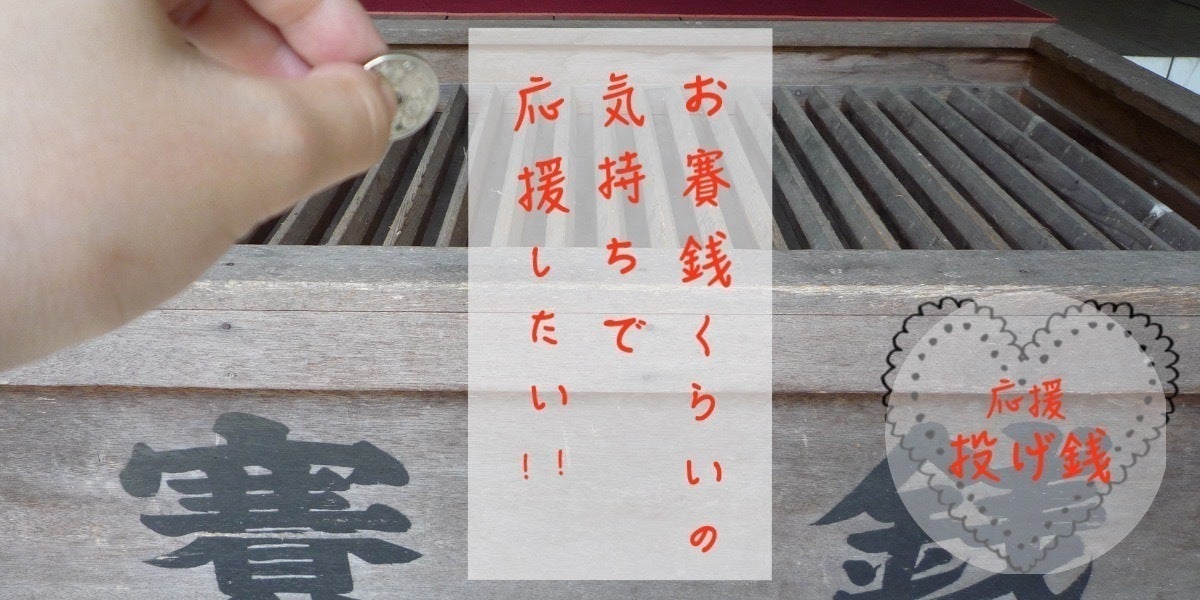 お賽銭くらいの
気持ちで
応援したい!!
応援
投げ銭
賽
銭